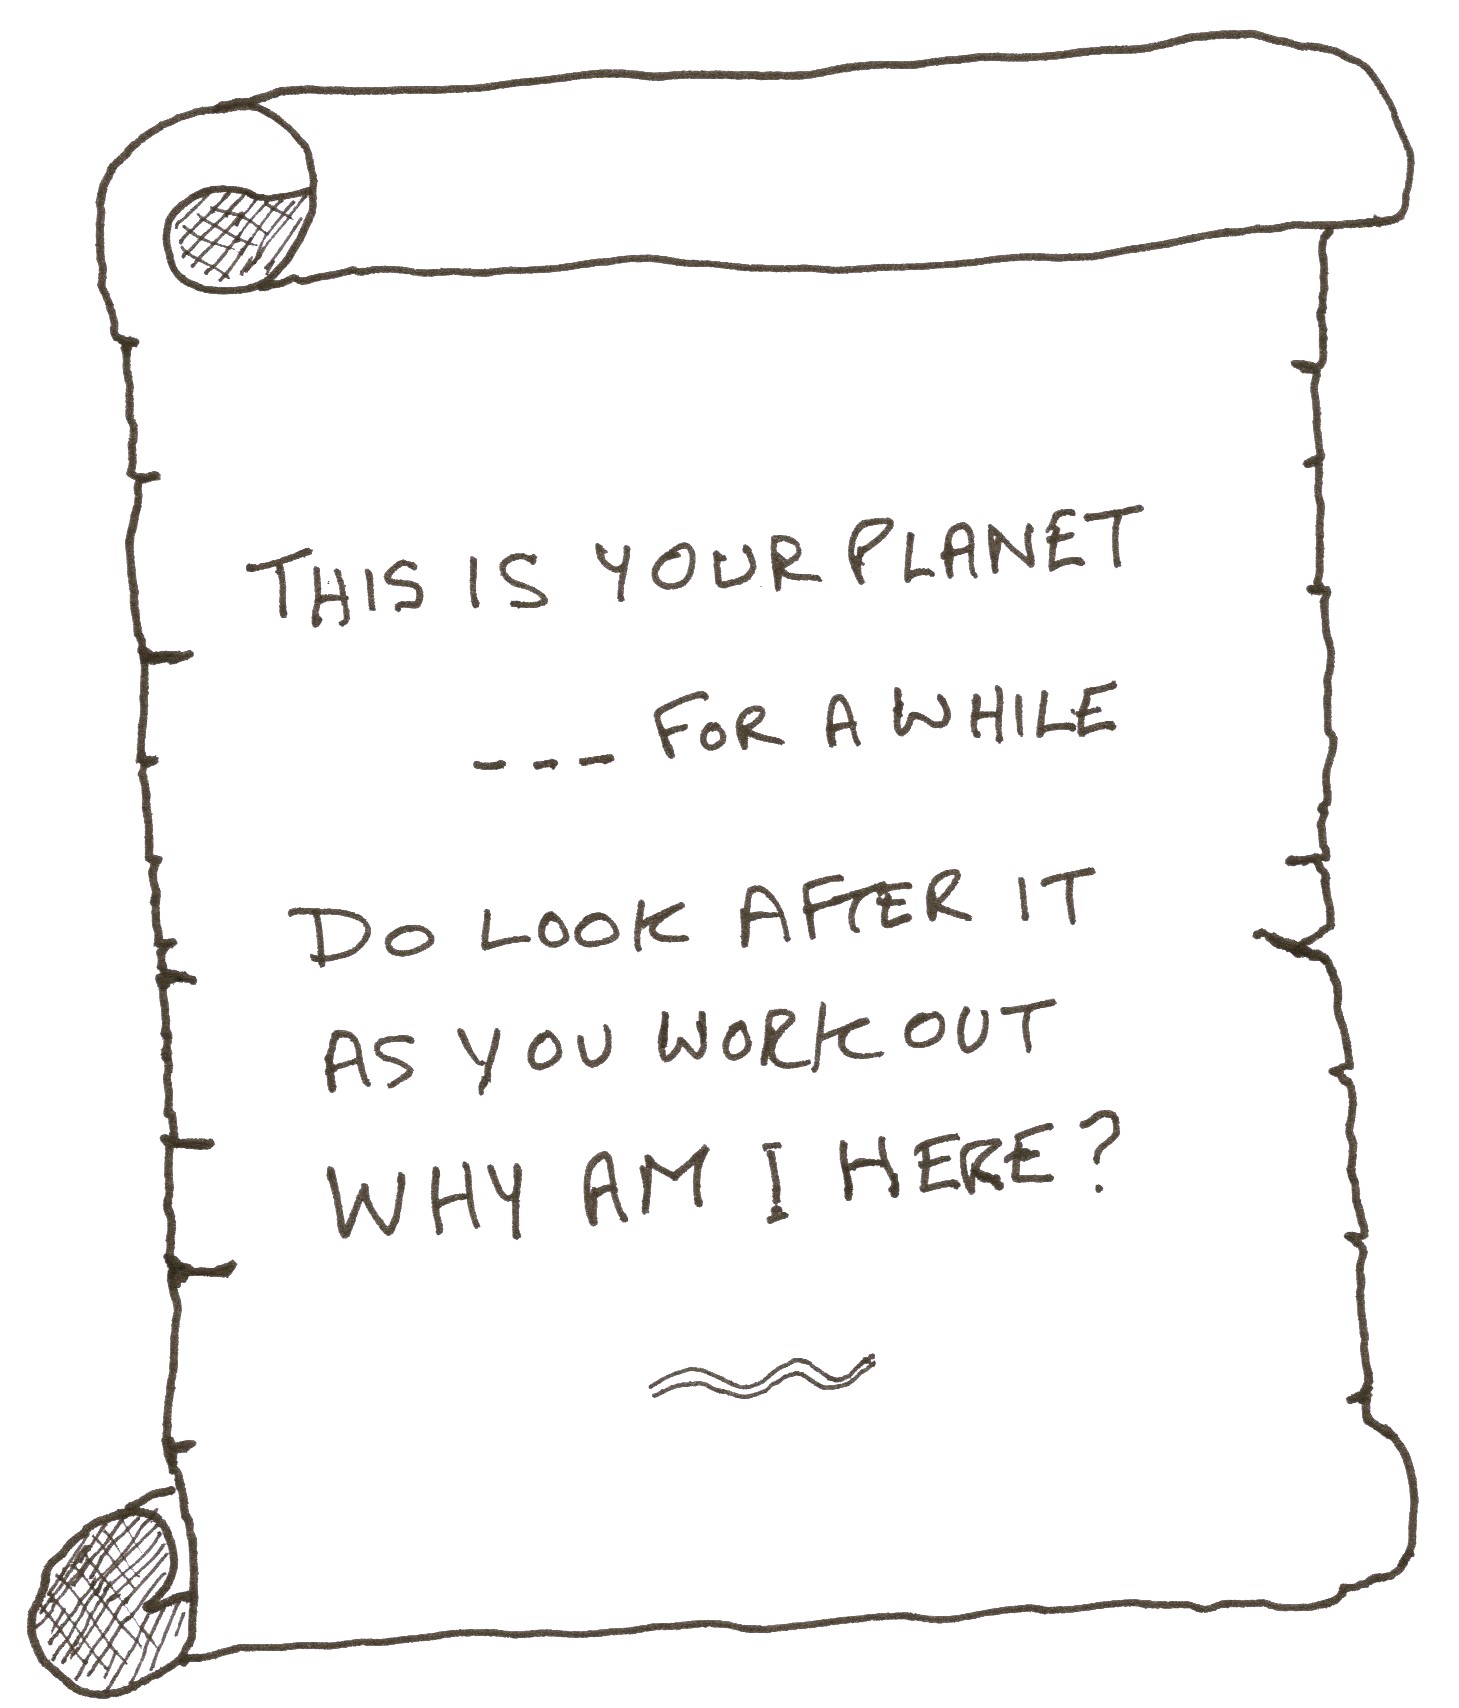 THIS IS YOUR PLANET
--- FOR A WHILE
DO LOOK AFTER IT
AS YOU WORK OUT
WHY AM I HERE?